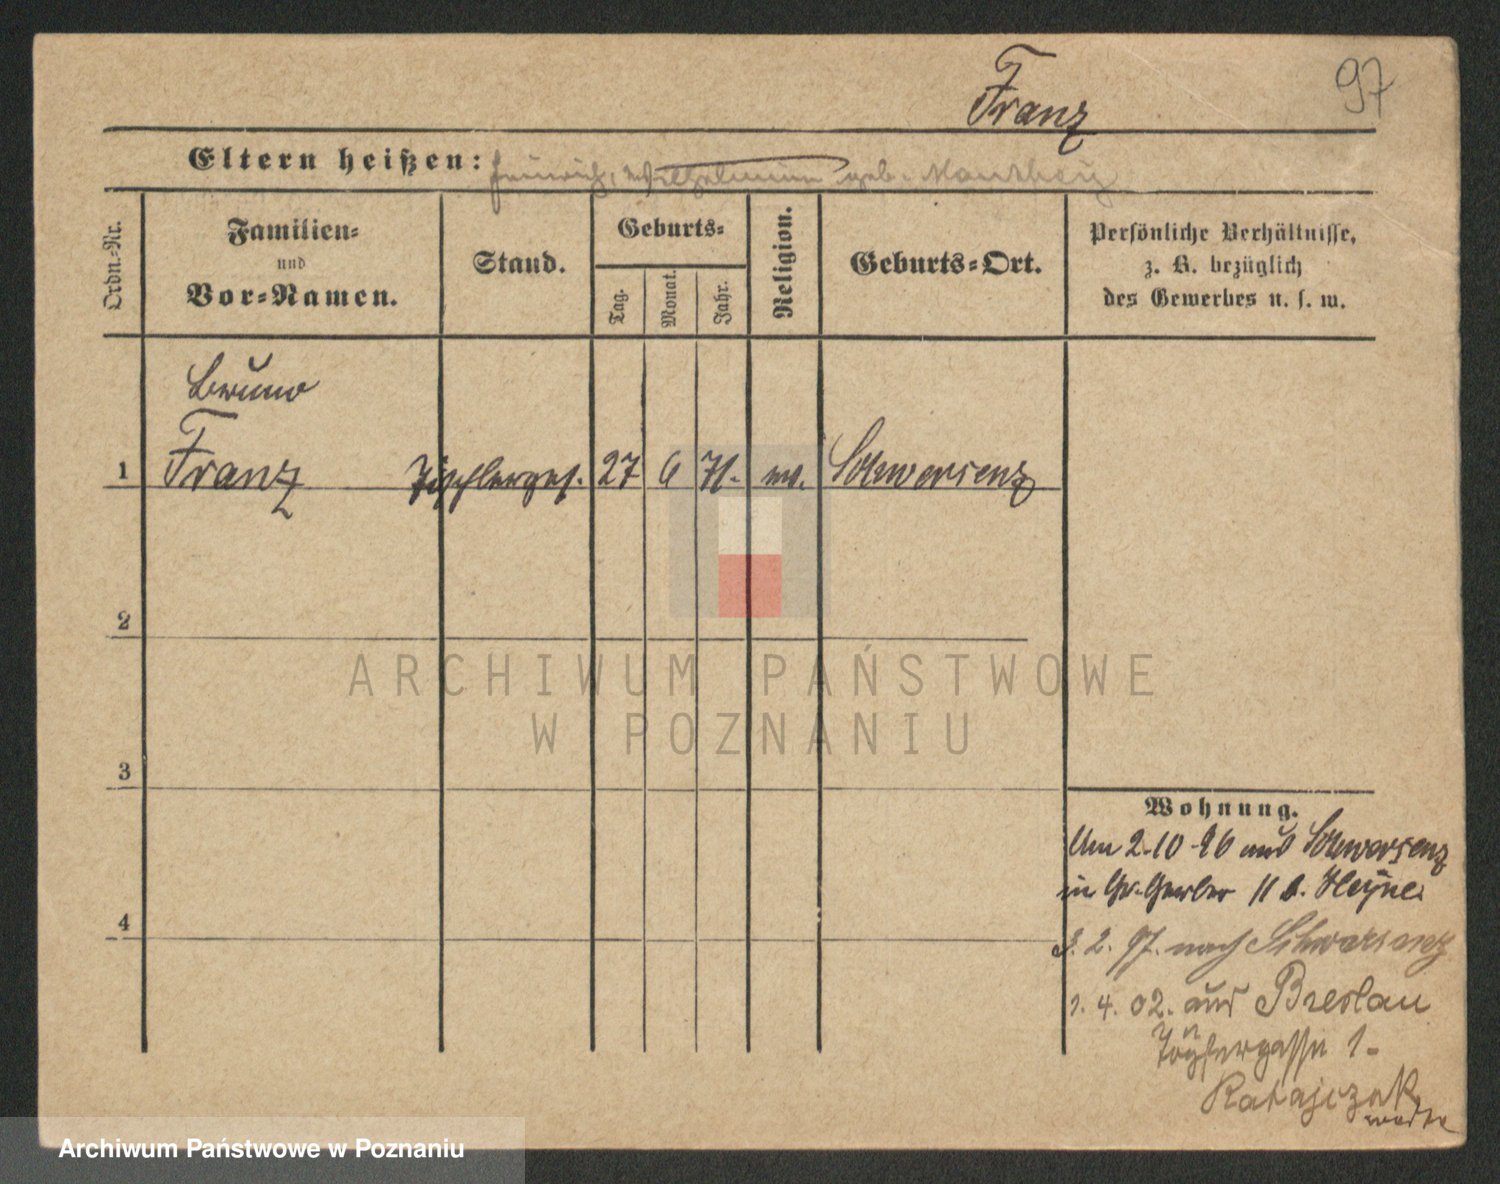 Franz
97
Eltern heißen: Heinrich, Wilhelmine geb.
Ordn.-Nr.
Familien-
und
Vor-Namen.
Stand.
Geburts-
Tag.
Monat.
Jahr.
Religion.
Geburts-Ort.
Persönliche Verhältnisse,
z. B. bezüglich
des Gewerbes u. s. w.
Bruno
1 Franz Tischlerges. 27 6 71. ev. Schwersenz
2
3
4
ARCHIWUM PAŃSTWOWE
W POZNANIU
Wohnung.
Am 2.10.96 aus Schwersenz
in Gr. Gerber 11 b. Heyne.
2. 97. nach Schwersenz
1. 4. 02. aus Breslau
Töpfergasse 1-
Ratajczak
Archiwum Państwowe w Poznaniu